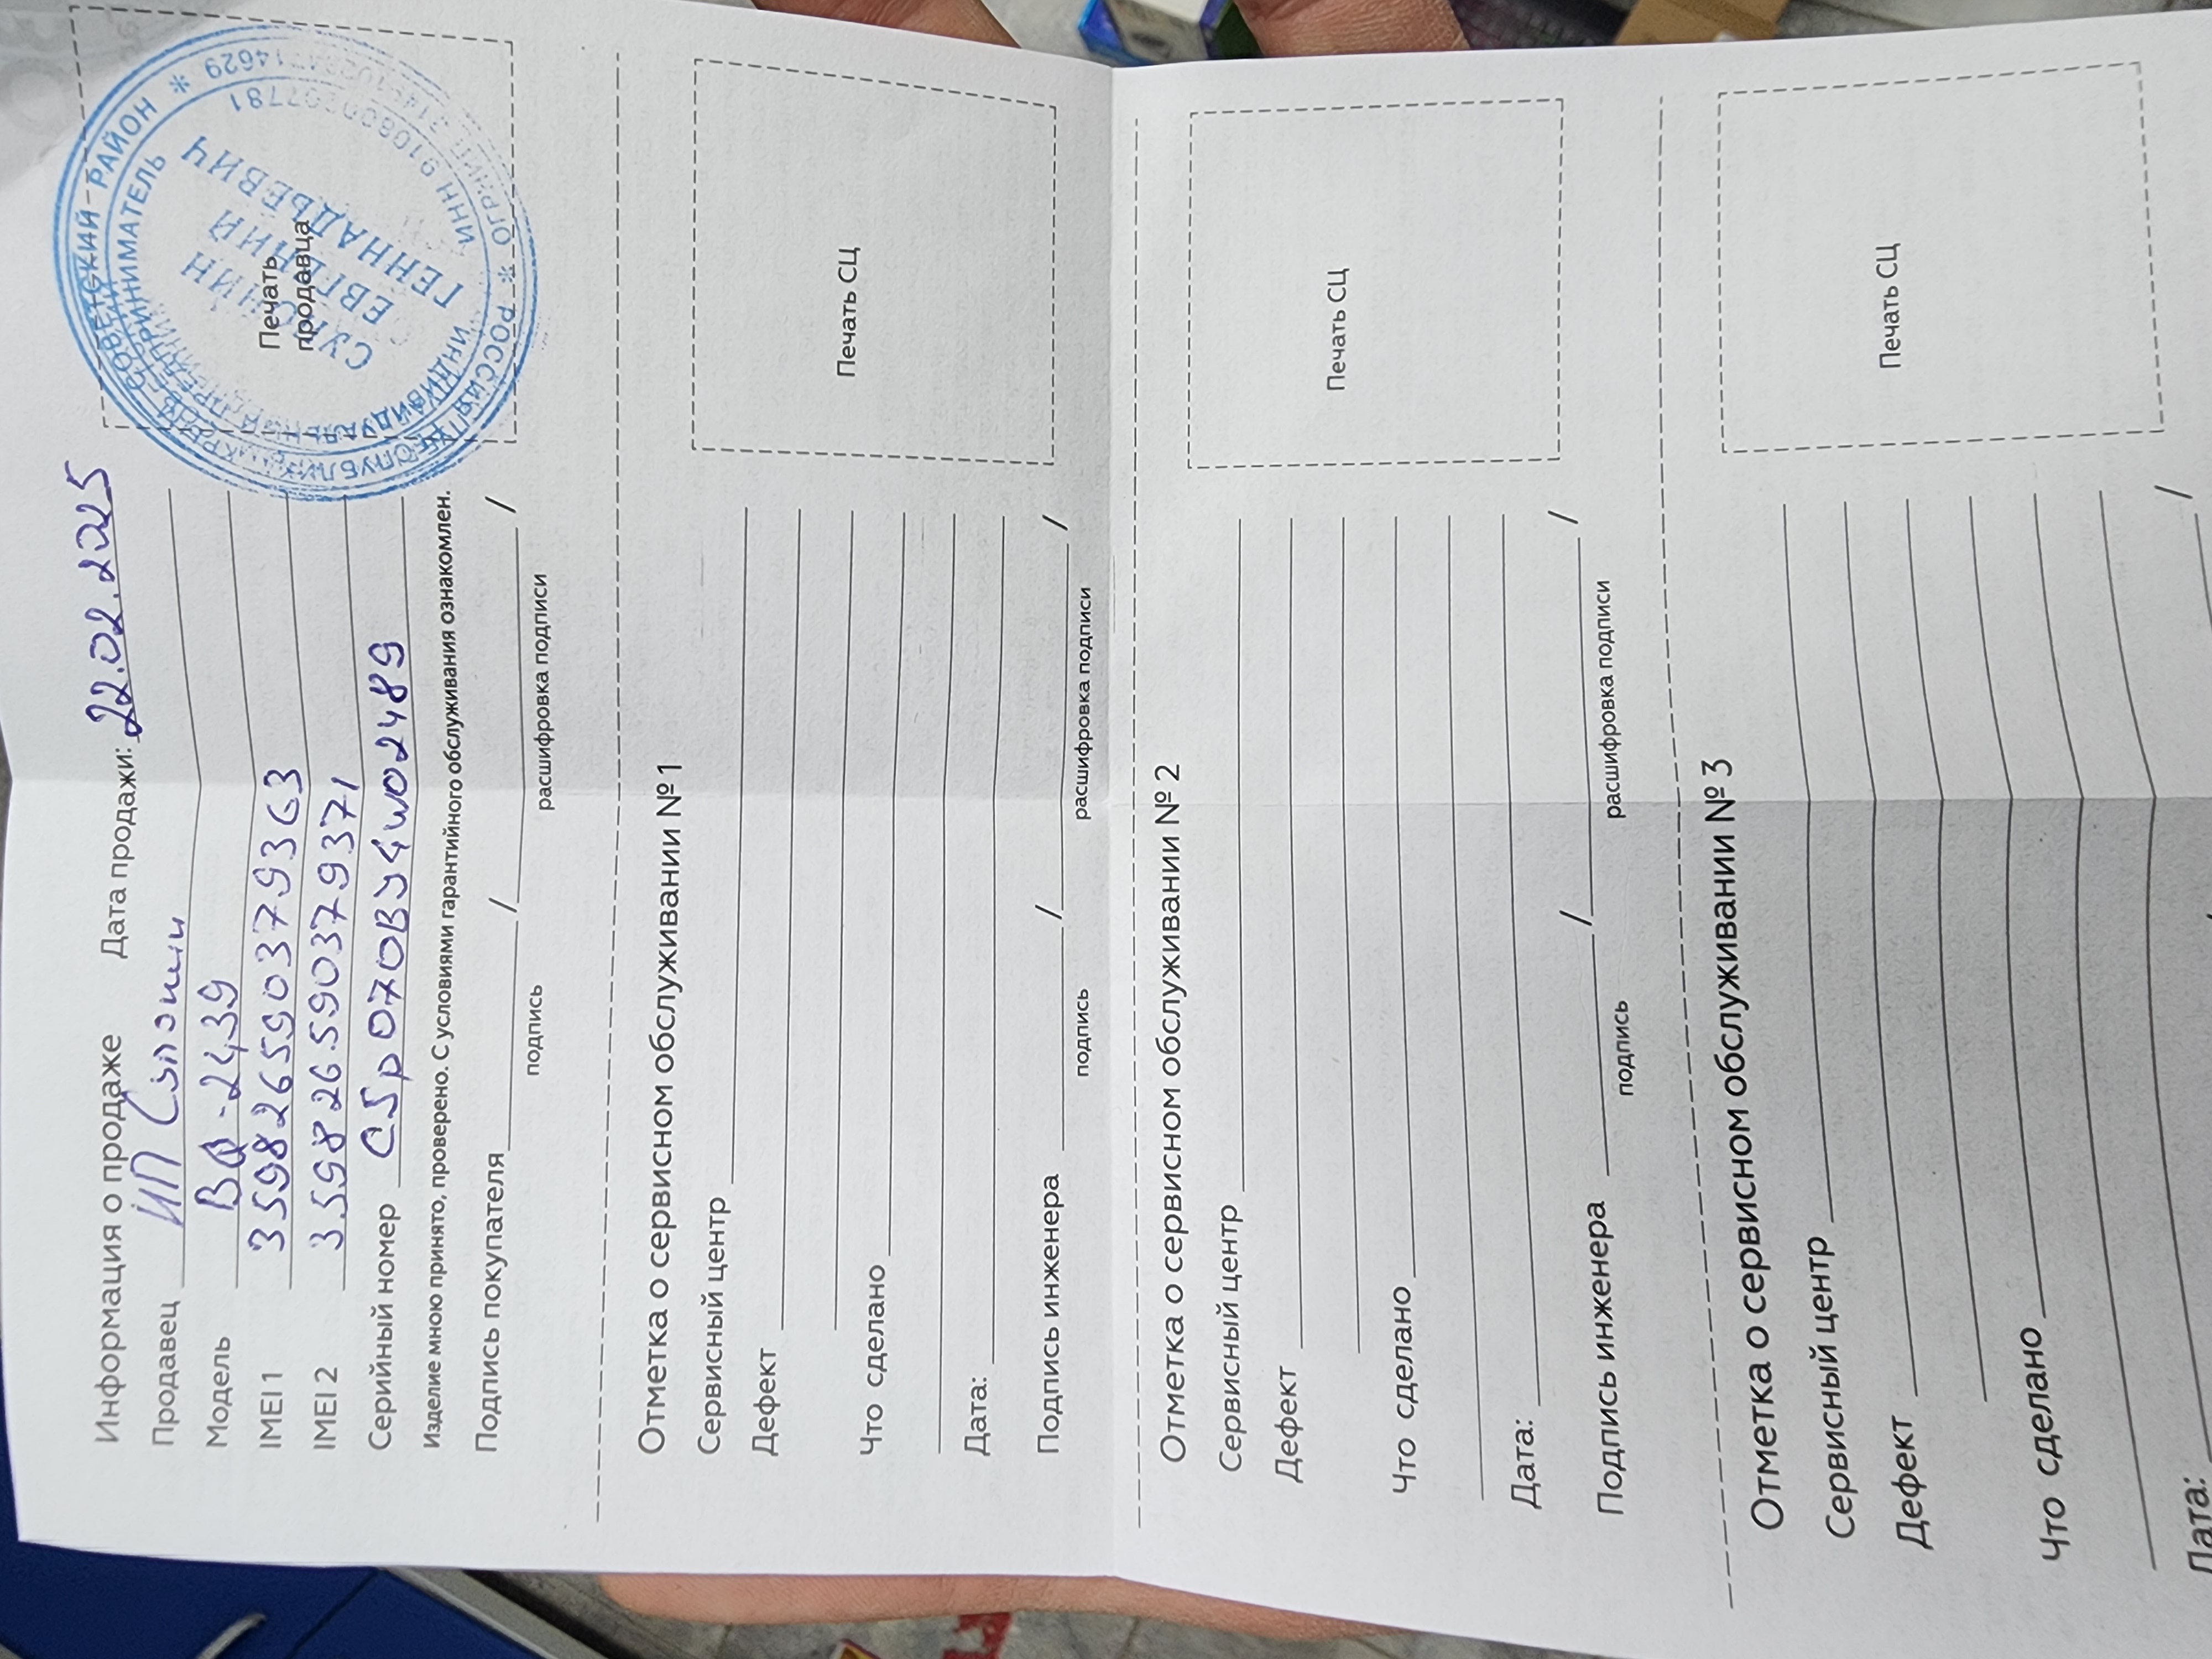 Информация о продаже Дата продажи: 22.02.2025
Продавец ИП
Модель BQ-2439
IMEI 1 359826590379363
IMEI 2 359826590379371
Серийный номер
Изделие мною принято, проверено. С условиями гарантийного обслуживания ознакомлен.
Подпись покупателя / /
подпись расшифровка подписи
Печать
продавца
СОВЕТСКИЙ РАЙОН
ИНДИВИДУАЛЬНЫЙ ПРЕДПРИНИМАТЕЛЬ
ЕВГЕНИЙ
ГЕННАДЬЕВИЧ
РОССИЯ
ИНН
Отметка о сервисном обслуживании № 1
Сервисный центр
Дефект
Что сделано
Дата:
Подпись инженера / /
подпись расшифровка подписи
Печать СЦ
Отметка о сервисном обслуживании № 2
Сервисный центр
Дефект
Что сделано
Дата:
Подпись инженера / /
подпись расшифровка подписи
Печать СЦ
Отметка о сервисном обслуживании № 3
Сервисный центр
Дефект
Что сделано
Дата: /
Печать СЦ